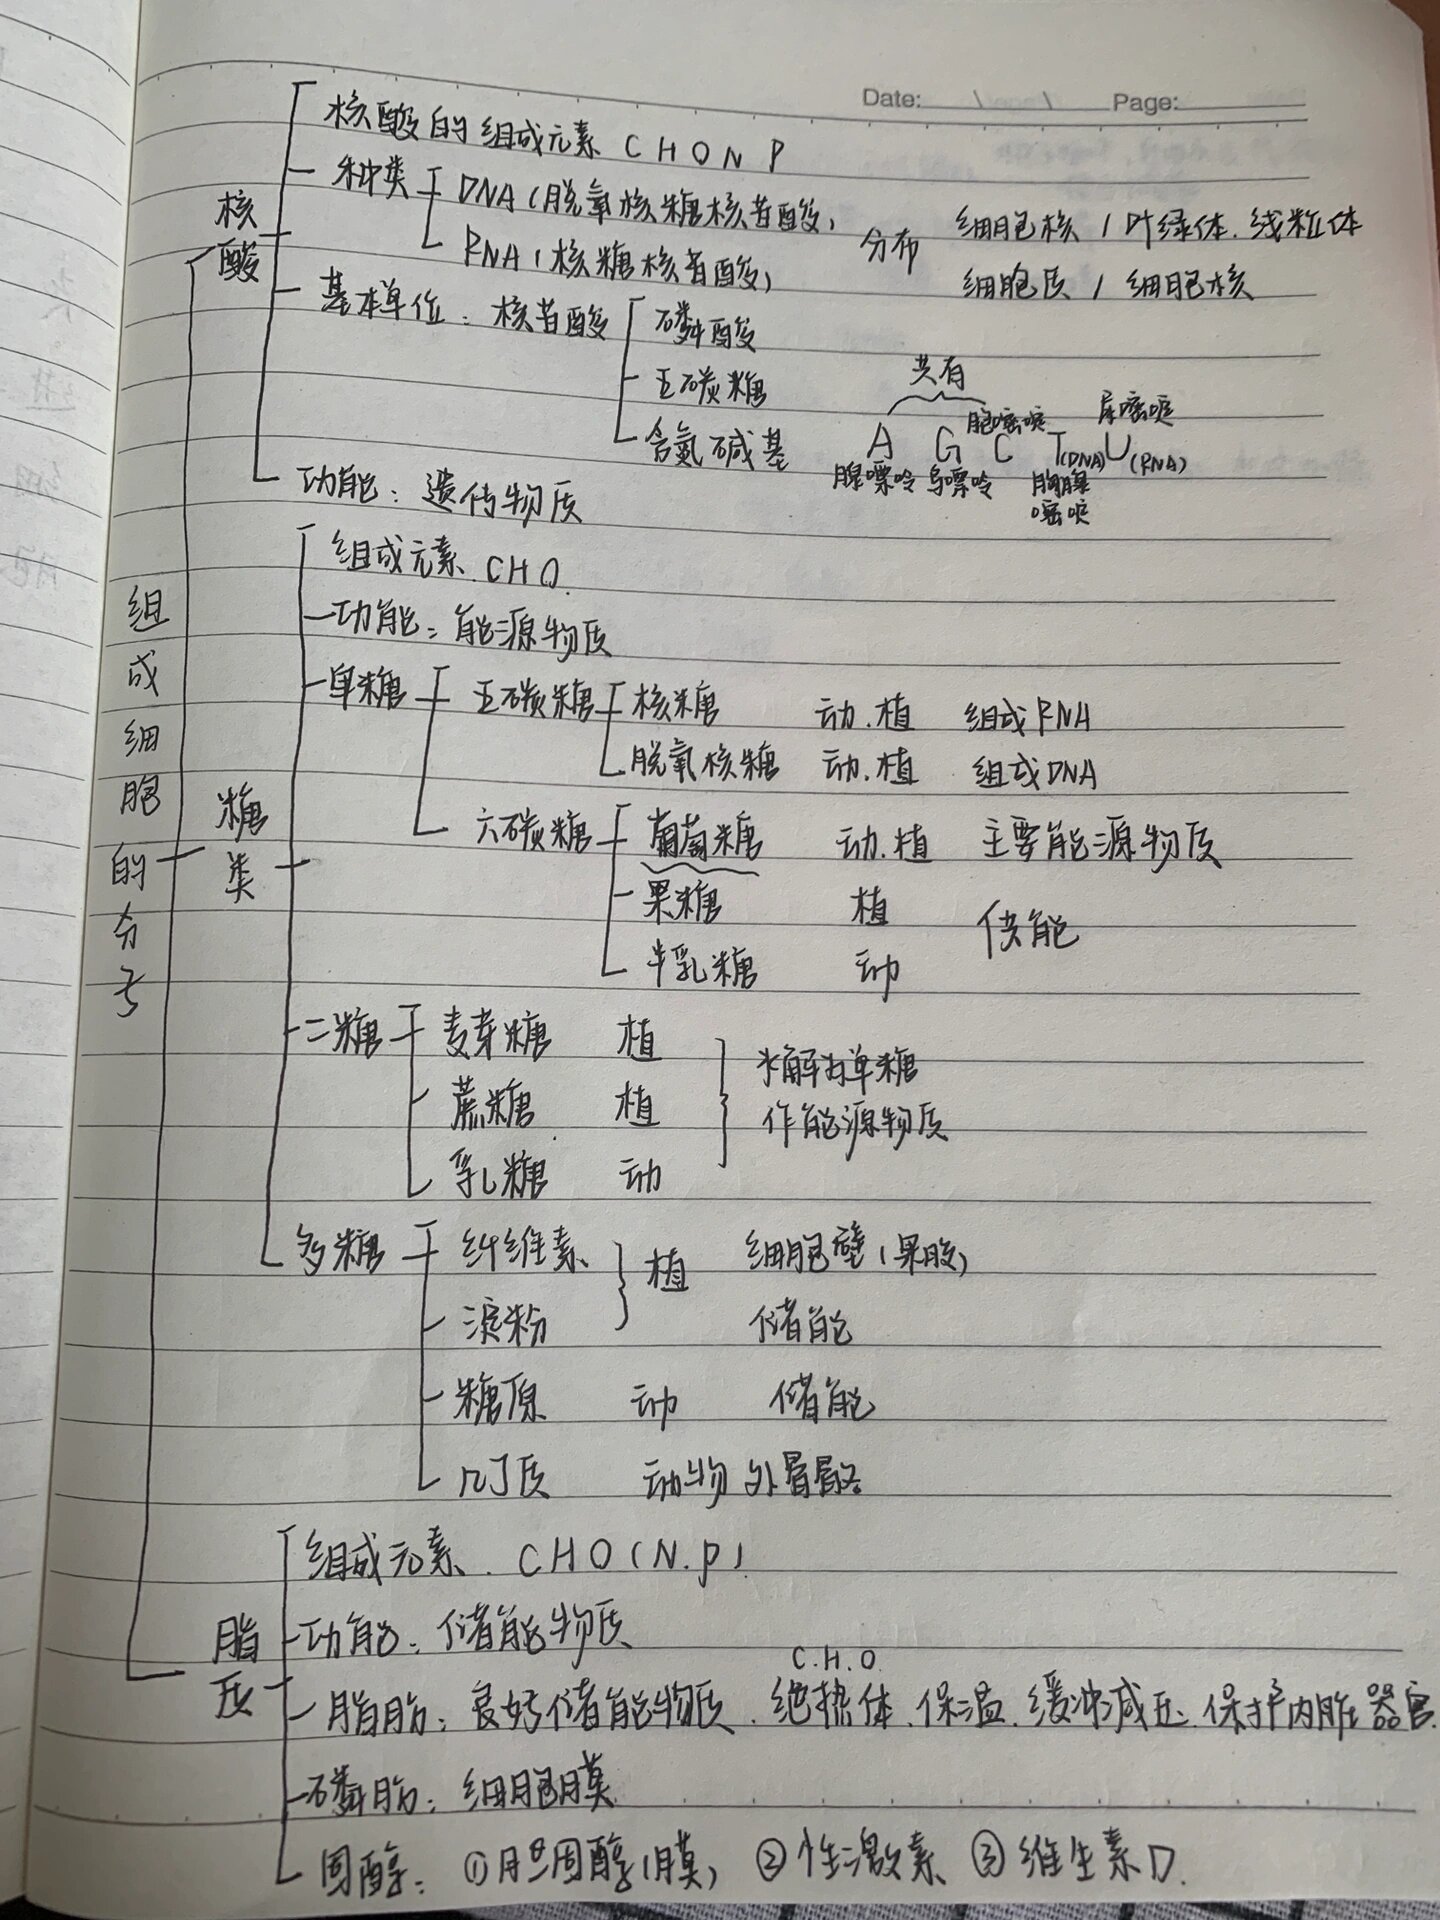 Date: \ / Page:
核酸的组成元素 C H O N P
种类 DNA(脱氧核糖核苷酸) 细胞核 / 叶绿体.线粒体
分布
RNA(核糖核苷酸) 细胞质 / 细胞核
核酸
基本单位: 核苷酸 磷酸
五碳糖
共有
含氮碱基 A G C T(DNA) U(RNA)
胞嘧啶 尿嘧啶
腺嘌呤 鸟嘌呤 胸腺嘧啶
功能: 遗传物质
组成细胞的分子
组成元素 CHO.
功能: 能源物质
单糖 五碳糖 核糖 动.植 组成RNA
脱氧核糖 动.植 组成DNA
糖类
六碳糖 葡萄糖 动.植 主要能源物质
果糖 植
供能
半乳糖 动
二糖 麦芽糖 植
水解为单糖
蔗糖 植
作能源物质
乳糖 动
多糖 纤维素 植 细胞壁(果胶)
淀粉 储能
糖原 动 储能
几丁质 动物 外骨骼
组成元素. CHO(N.P)
脂质
功能: 储能物质
C.H.O
脂肪: 良好储能物质. 绝热体.保温.缓冲减压.保护内脏器官.
磷脂: 细胞膜
固醇: ①胆固醇(膜) ②性激素 ③维生素D.